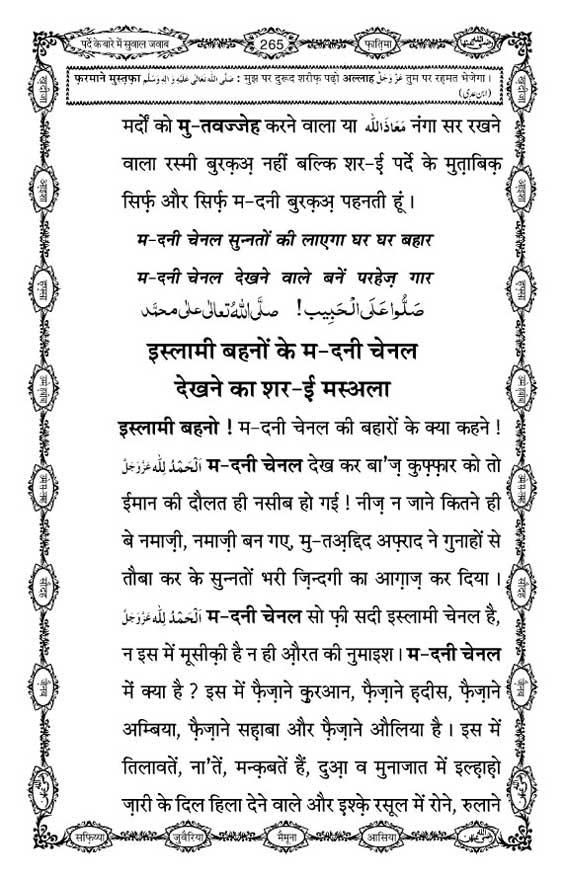 पर्दे के बारे में सुवाल जवाब
265
फ़ातिमा
फ़रमाने मुस्तफ़ा صَلَّى اللهُ تَعَالٰى عَلَيْهِ وَاٰلِهٖ وَسَلَّم : मुझ पर दुरूद शरीफ़ पढ़ो अल्लाह عَزَّوَجَلَّ तुम पर रहमत भेजेगा।
(ابن عدی)
मर्दों को मु-तवज्जेह करने वाला या مَعَاذَ اللّٰه नंगा सर रखने
वाला रस्मी बुरक़अ़ नहीं बल्कि शर-ई़ पर्दे के मुत़ाबिक़
सिर्फ़ और सिर्फ़ म-दनी बुरक़अ़ पहनती हूं।
म-दनी चेनल सुन्नतों की लाएगा घर घर बहार
म-दनी चेनल देखने वाले बनें परहेज़ गार
صَلُّوا عَلَى الْحَبِيب! صلَّى اللهُ تعالٰى علٰى محمَّد
इस्लामी बहनों के म-दनी चेनल
देखने का शर-ई मस्अला
इस्लामी बहनो ! म-दनी चेनल की बहारों के क्या कहने !
اَلْحَمْدُ لِلّٰه عَزَّوَجَلَّ म-दनी चेनल देख कर बा'ज़ कुफ़्फ़ार को तो
ईमान की दौलत ही नसीब हो गई ! नीज़ न जाने कितने ही
बे नमाज़ी, नमाज़ी बन गए, मु-तअ़द्दिद अफ़्राद ने गुनाहों से
तौबा कर के सुन्नतों भरी ज़िन्दगी का आग़ाज़ कर दिया।
اَلْحَمْدُ لِلّٰه عَزَّوَجَلَّ म-दनी चेनल सो फ़ी सदी इस्लामी चेनल है,
न इस में मूसीक़ी है न ही औ़रत की नुमाइश। म-दनी चेनल
में क्या है ? इस में फ़ैज़ाने क़ुरआन, फ़ैज़ाने ह़दीस, फ़ैज़ाने
अम्बिया, फ़ैज़ाने सह़ाबा और फ़ैज़ाने औलिया है। इस में
तिलावतें, ना'तें, मन्क़बतें हैं, दुआ़ व मुनाजात में इल्ह़ाह़ो
ज़ारी के दिल हिला देने वाले और इश्क़े रसूल में रोने, रुलाने
सफ़िय्या
जुवैरिया
मैमूना
आसिया